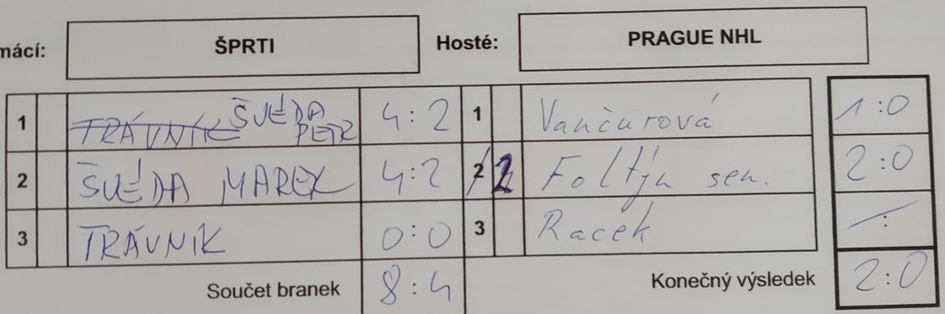 mácí: ŠPRTI Hosté: PRAGUE NHL
1 TRÁVNÍK ŠVÉDA PETR 4:2 1 Vančurová 1:0
2 ŠVÉDA MAREK 4:2 2 2 Foltýn sen. 2:0
3 TRÁVNÍK 0:0 3 Racek - : -
Součet branek 8:4 Konečný výsledek 2:0